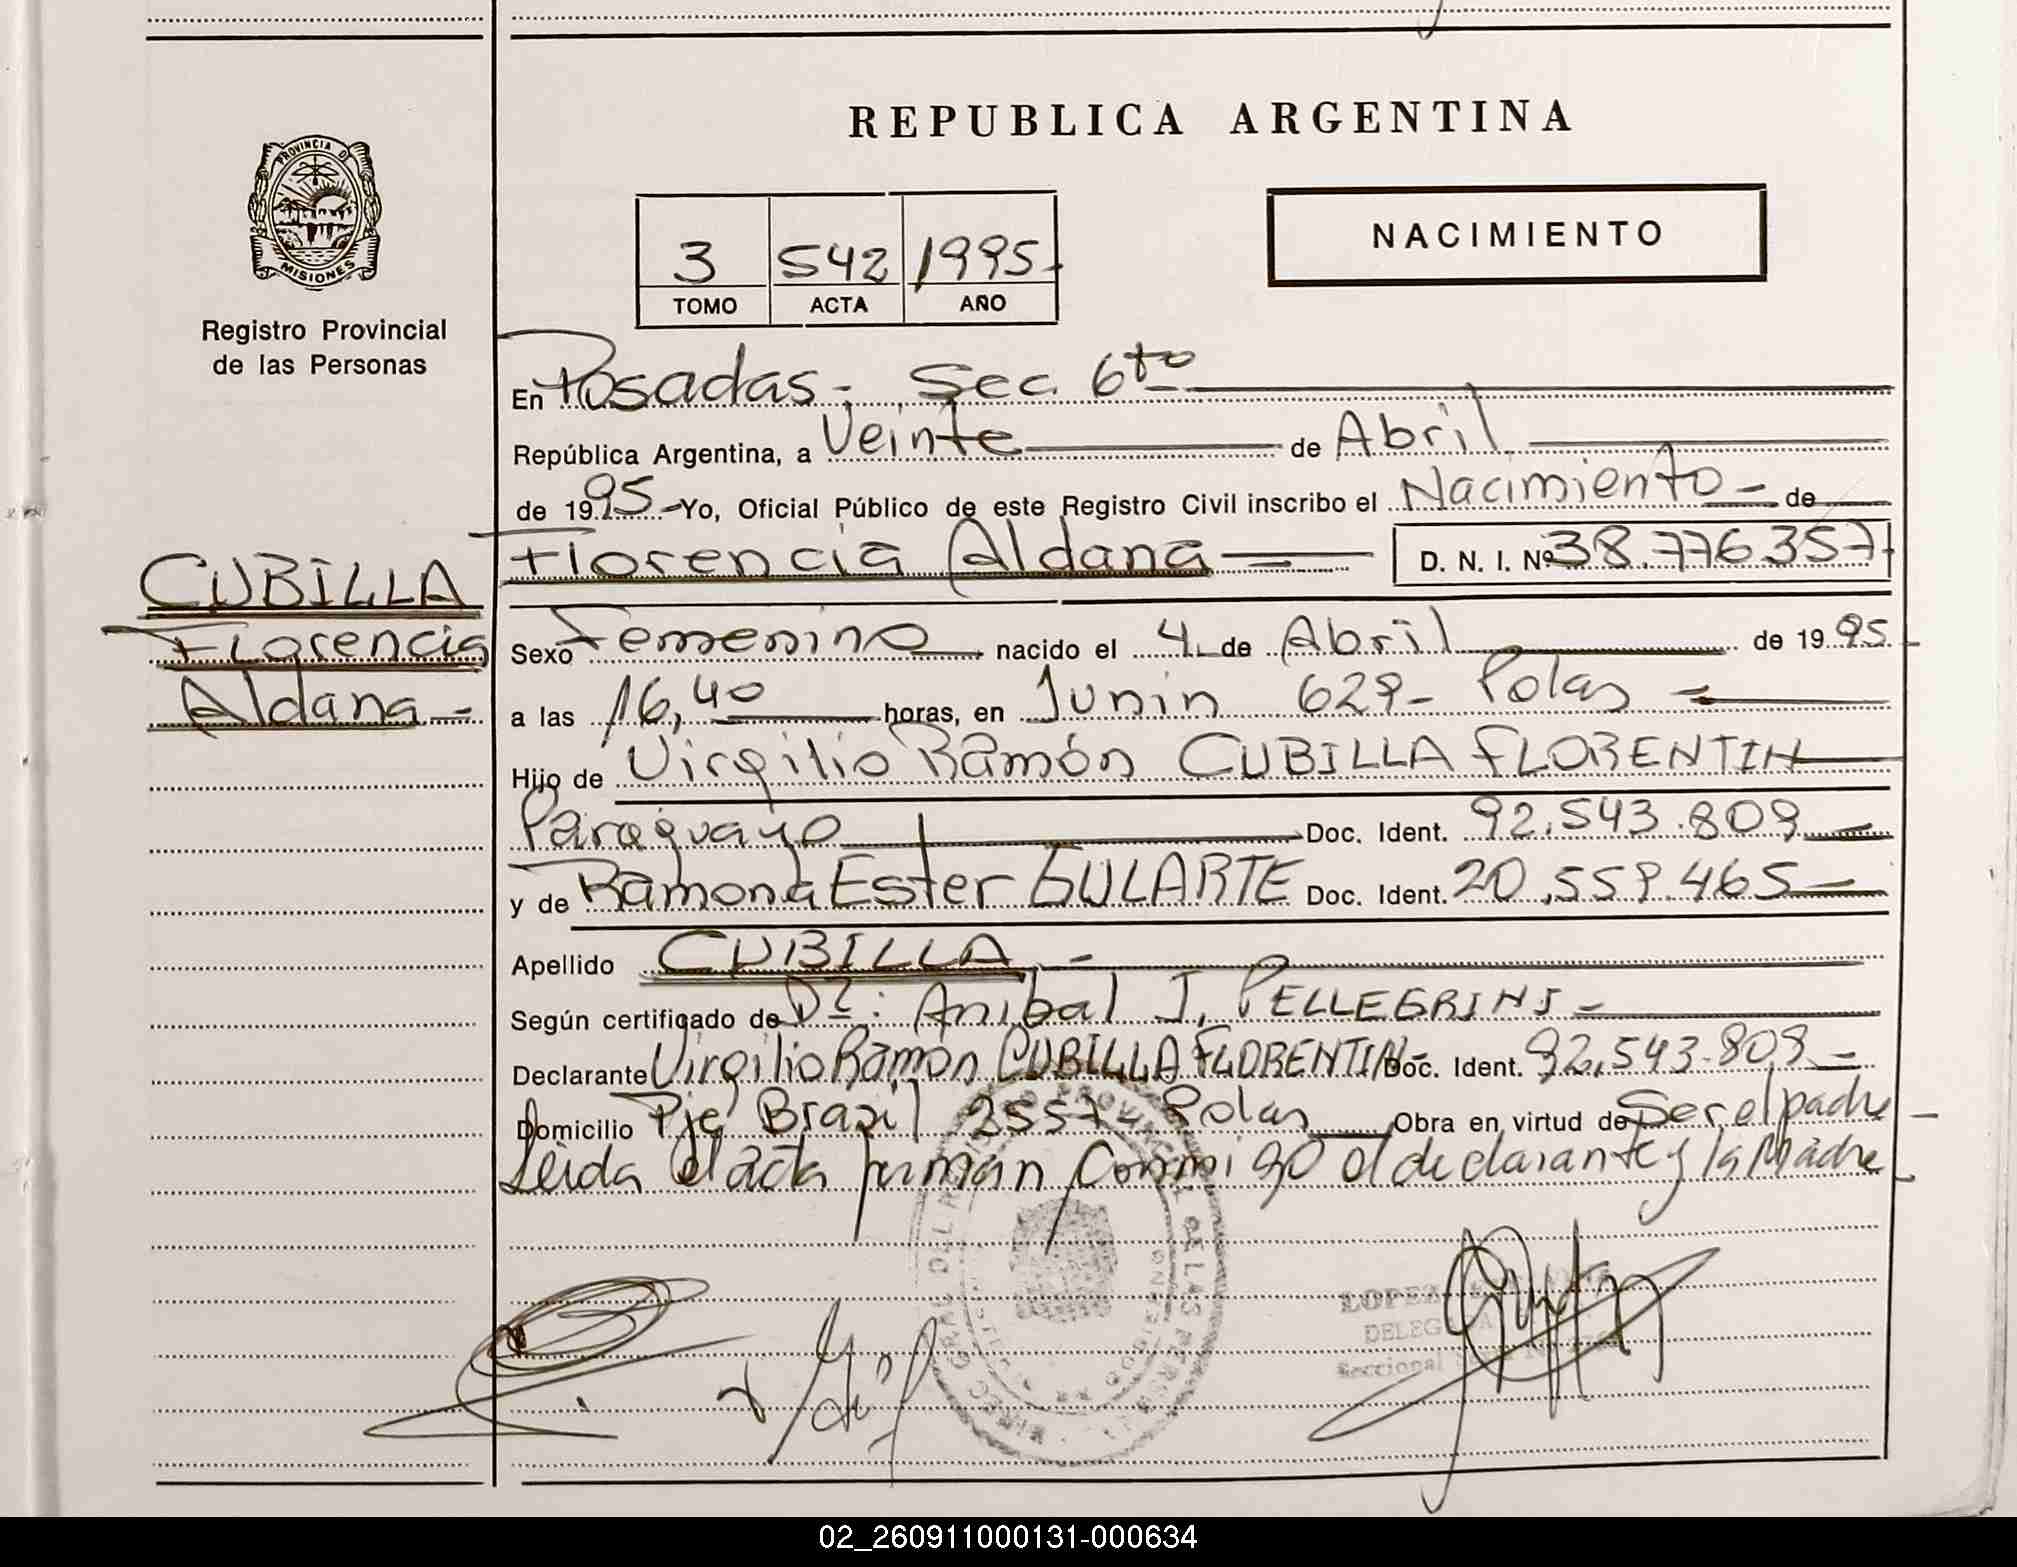 REPUBLICA ARGENTINA
PROVINCIA DE
MISIONES
Registro Provincial
de las Personas
3 542 1995
TOMO ACTA AÑO
NACIMIENTO
En Posadas - Sec. 6to
República Argentina, a Veinte de Abril
de 1995 - Yo, Oficial Público de este Registro Civil inscribo el Nacimiento - de
Florencia Aldana D. N. I. Nº 38.776.357
CUBILLA
Florencia
Aldana -
Sexo Femenino nacido el 4 de Abril de 1995.
a las 16,40 horas, en Junin 629 - Pdas
Hijo de Virgilio Ramón CUBILLA FLORENTIN
Paraguayo Doc. Ident. 92.543.809
y de Ramona Ester GULARTE Doc. Ident. 20.559.465
Apellido CUBILLA -
Según certificado de Dr: Anibal J. PELLEGRINI -
Declarante Virgilio Ramón CUBILLA FLORENTIN - Doc. Ident. 92.543.809
Domicilio Pje Brasil 2557 - Pdas Obra en virtud de Ser el padre -
Leida el acta firman conmigo el declarante y la Madre
LOPEZ
Seccional
02_260911000131-000634